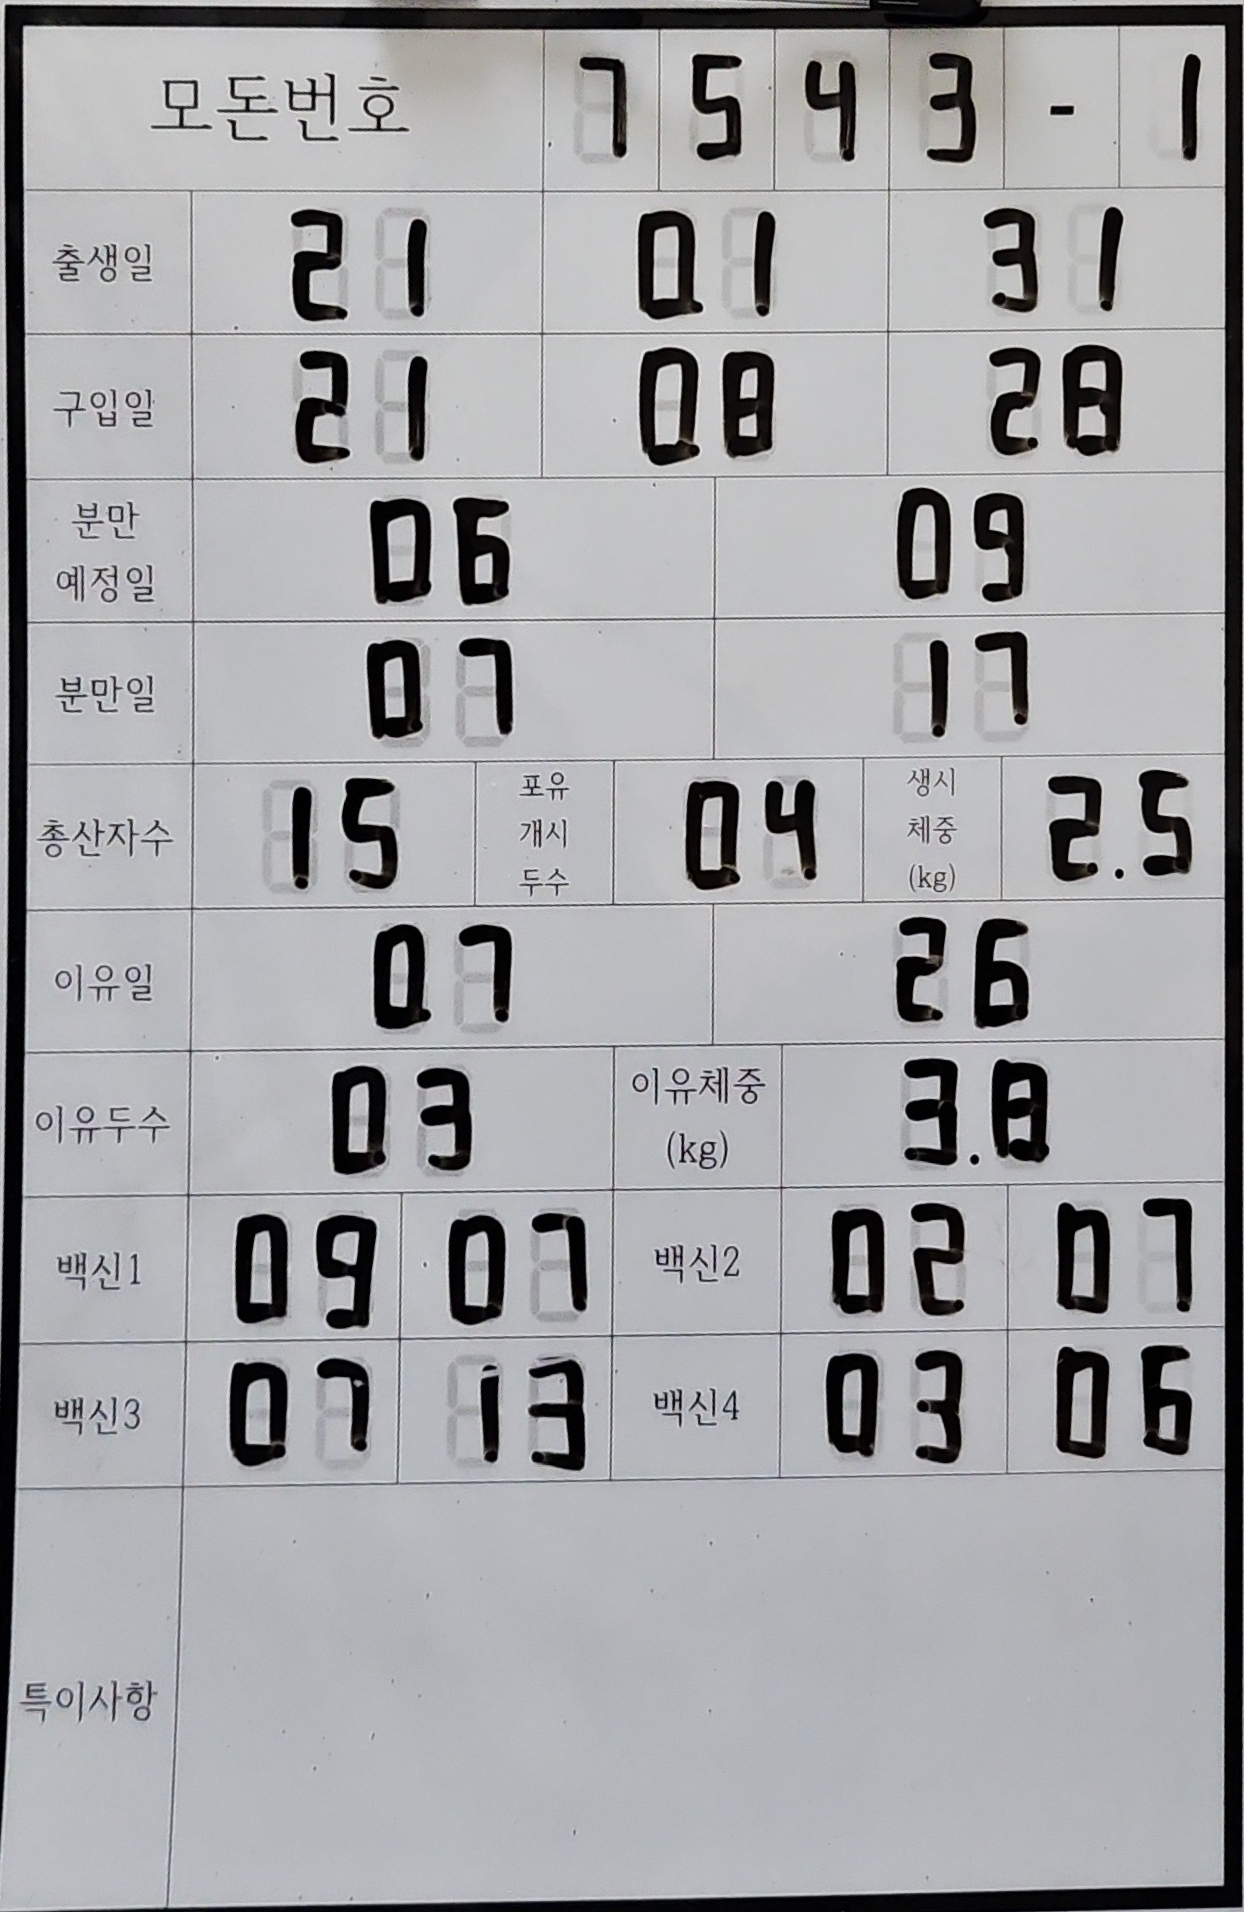 모돈번호 7 5 4 3 - 1
출생일 21 01 31
구입일 21 08 28
분만
예정일 06 09
분만일 07 17
총산자수 15 포유
개시
두수 04 생시
체중
(kg) 2.5
이유일 07 26
이유두수 03 이유체중
(kg) 3.8
백신1 09 07 백신2 02 07
백신3 07 13 백신4 03 06
특이사항